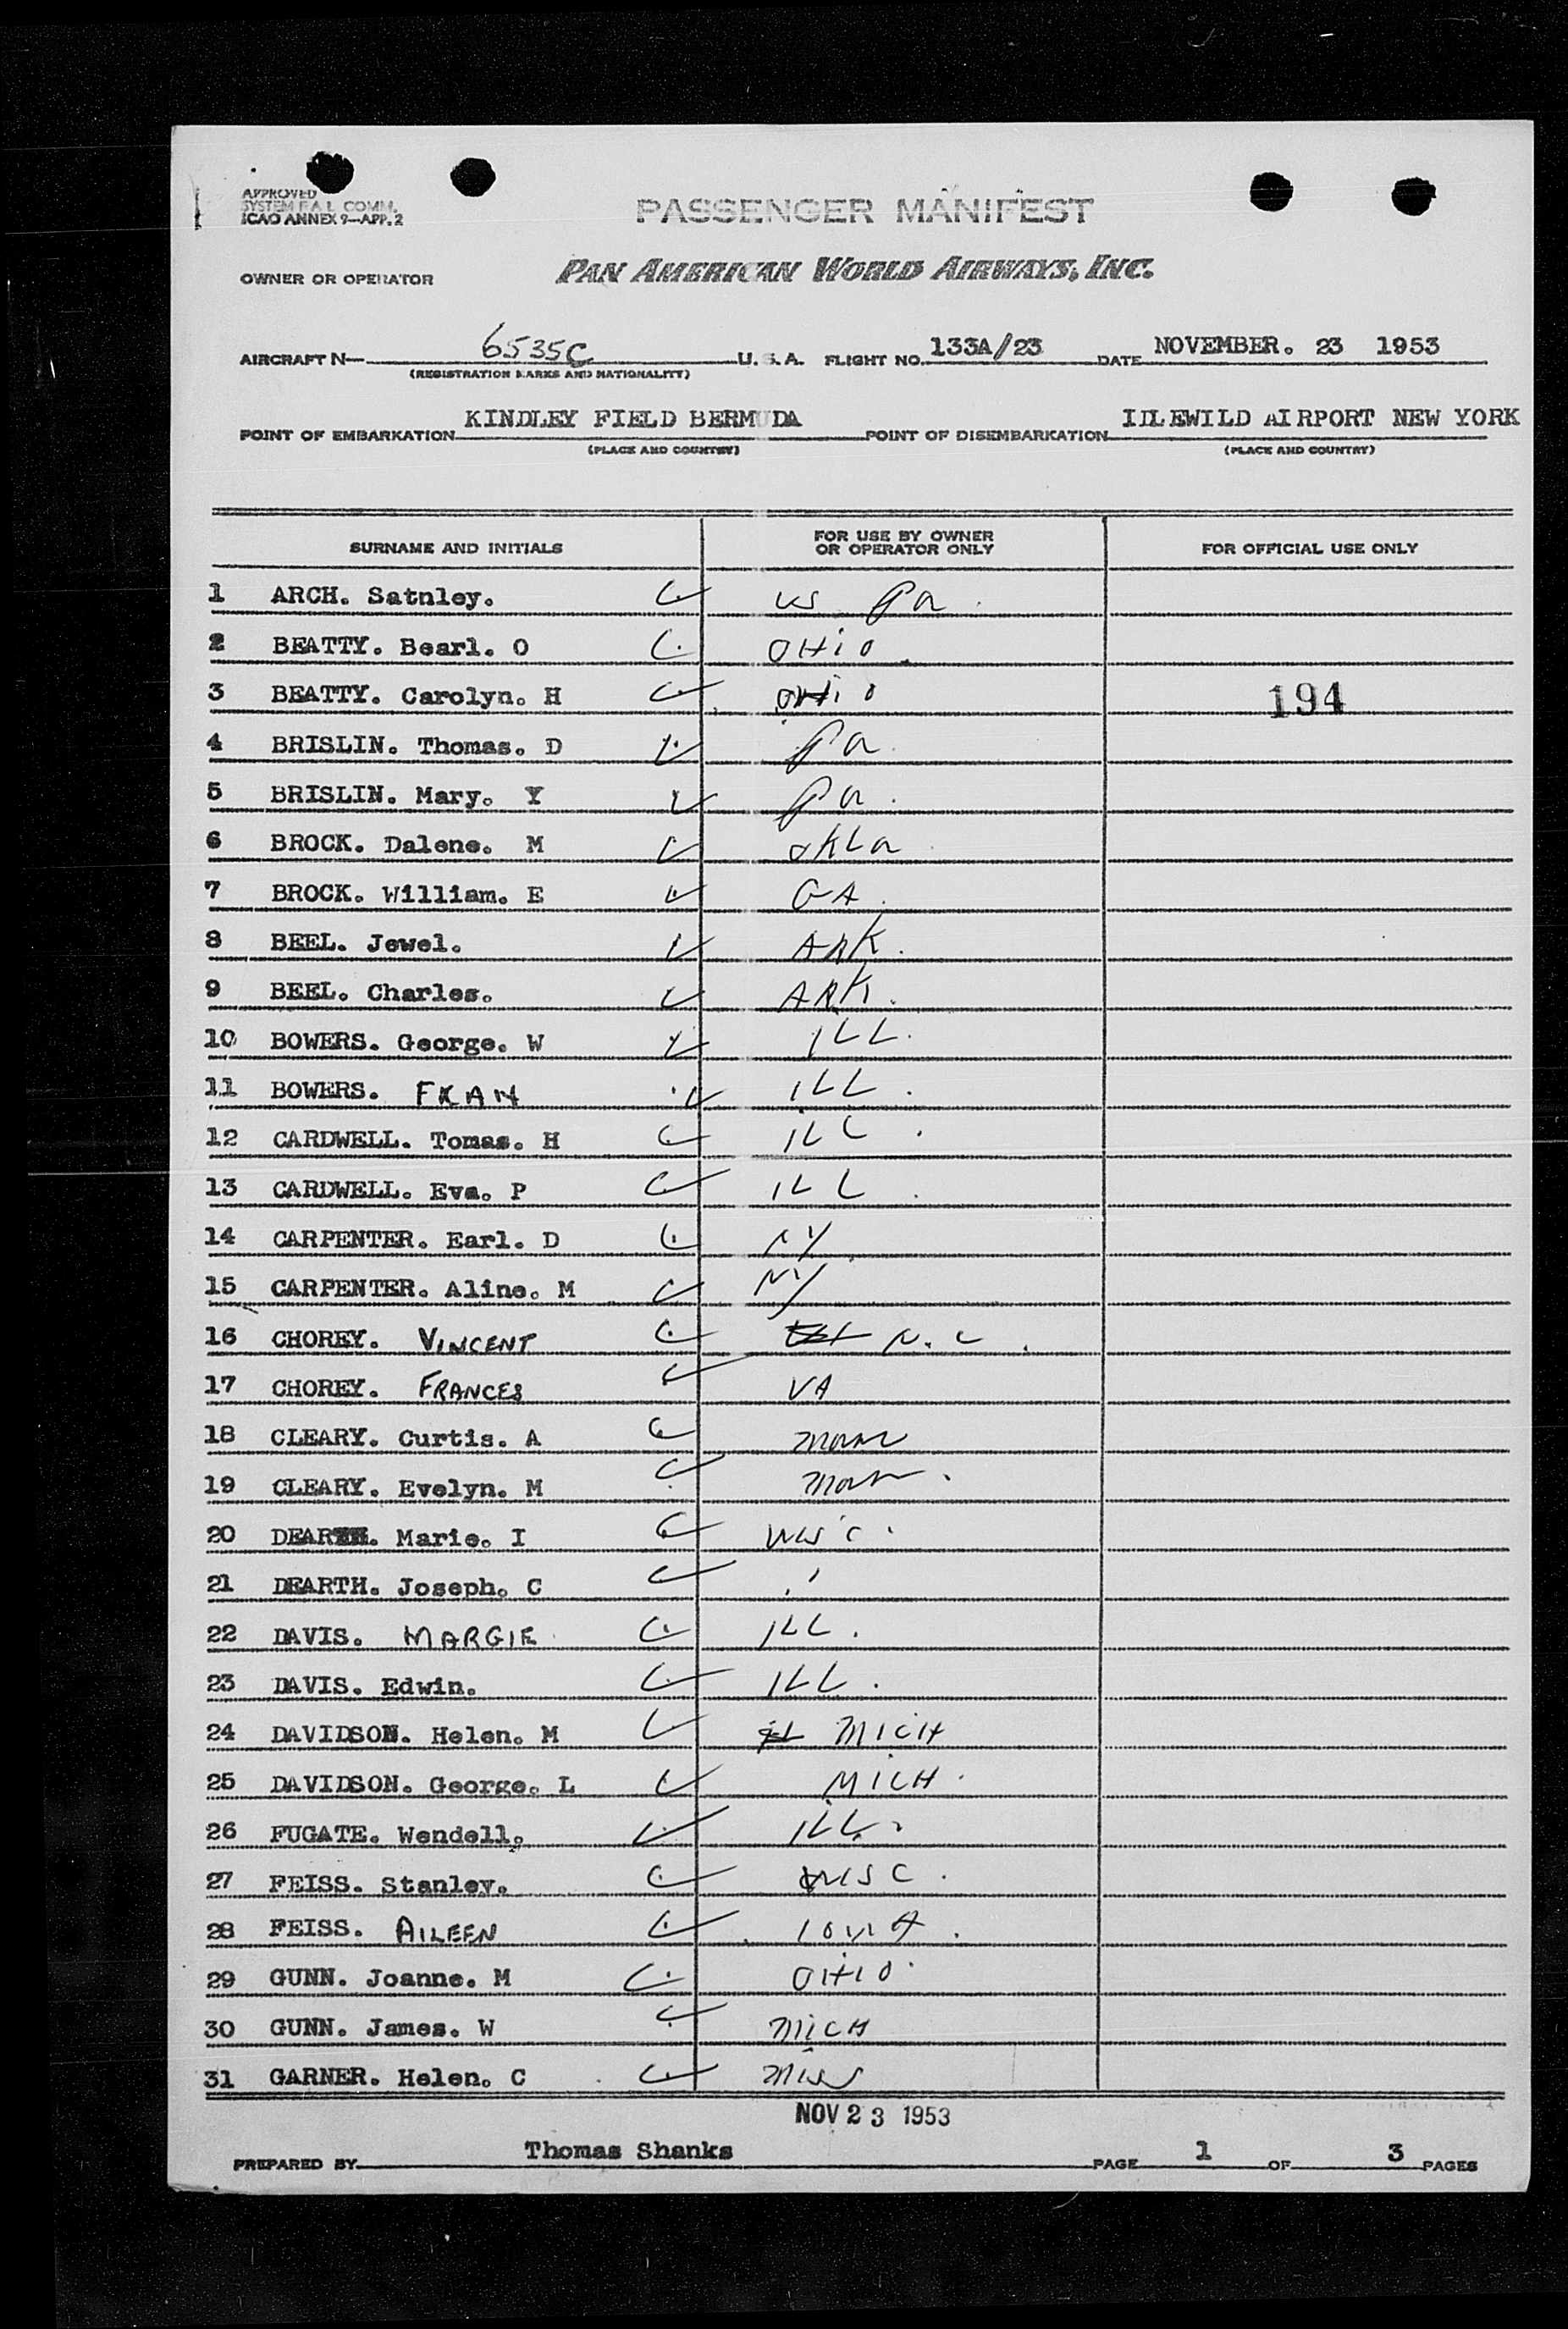 APPROVED
SYSTEM F.A.L. COMM.
ICAO ANNEX 9—APP. 2
PASSENGER MANIFEST
OWNER OR OPERATOR PAN AMERICAN WORLD AIRWAYS, INC.
AIRCRAFT N— 6535C U. S. A. FLIGHT NO. 133A/23 DATE NOVEMBER. 23 1953
(REGISTRATION MARKS AND NATIONALITY)
POINT OF EMBARKATION KINDLEY FIELD BERMUDA POINT OF DISEMBARKATION IDLEWILD AIRPORT NEW YORK
(PLACE AND COUNTRY) (PLACE AND COUNTRY)
SURNAME AND INITIALS FOR USE BY OWNER OR OPERATOR ONLY FOR OFFICIAL USE ONLY
1 ARCH. Satnley. US Pa.
2 BEATTY. Bearl. O OHiO
3 BEATTY. Carolyn. H OHiO 194
4 BRISLIN. Thomas. D Pa.
5 BRISLIN. Mary. Y Pa.
6 BROCK. Dalene. M OKLa
7 BROCK. William. E GA.
8 BEEL. Jewel. ARK.
9 BEEL. Charles. ARK.
10 BOWERS. George. W ILL.
11 BOWERS. FRAN ILL.
12 CARDWELL. Tomas. H ILL.
13 CARDWELL. Eva. P ILL.
14 CARPENTER. Earl. D NY
15 CARPENTER. Aline. M NY
16 CHOREY. VINCENT N.C.
17 CHOREY. FRANCES VA
18 CLEARY. Curtis. A Mass
19 CLEARY. Evelyn. M Mass.
20 DEARTH. Marie. I Wisc.
21 DEARTH. Joseph. C "
22 DAVIS. MARGIE ILL.
23 DAVIS. Edwin. ILL.
24 DAVIDSON. Helen. M MICH
25 DAVIDSON. George. L MICH.
26 FUGATE. Wendell. ILL.
27 FEISS. Stanley. WISC.
28 FEISS. AILEEN IOWA.
29 GUNN. Joanne. M OHIO.
30 GUNN. James. W MICH
31 GARNER. Helen. C Miss
NOV 23 1953
PREPARED BY Thomas Shanks PAGE 1 OF 3 PAGES